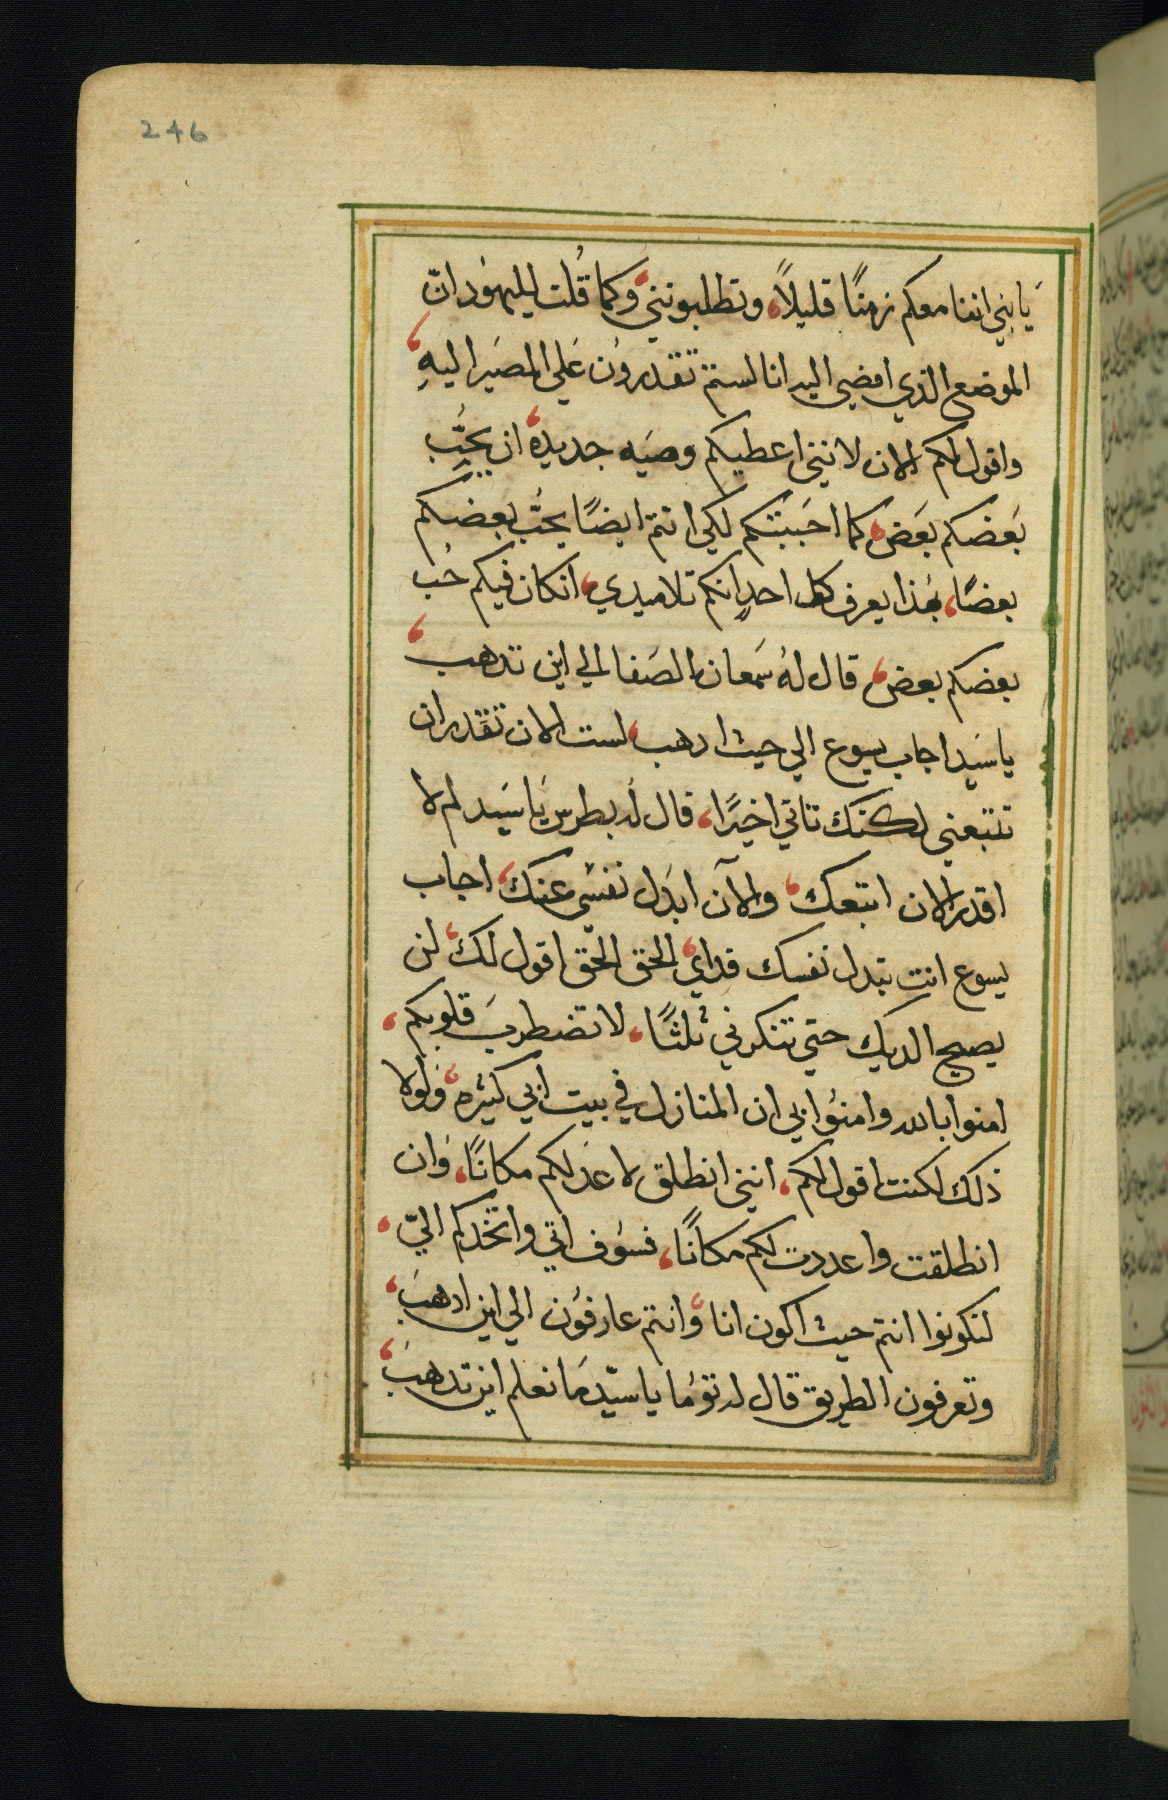 246
يابني انا معكم زمنًا قليلاً، وتطلبونني، وكما قُلت لليهود انّ
الموضع الذي امضي اليه انا لستم تقدرون عَلي المصَير اليهِ،
واقول لكم الان لانني اعطيكم وصَيه جديده، ان يحبّ
بَعضكم بَعَض، كما احَببتكم لكي انتم ايضًا يحبّ بعضكم
بعضًا، بهٰذا يعرف كل احدٍ انكم تلاميدي، ان كان فيكم حُب
بعضكم بعض، قال لهُ سَمعان الصَفا الي اين تدهب،
ياسَيد اجاب يسوع الي حيث ادهب، لست الان تقدر ان
تتبعني لكنك تاتي اخيرًا، قال له بطرس يَاسَيد لم لا
اقدر الان اتبعك، والآن ابدَل نفسَي عنك، اجاب
يسوع انت تبدل نفسك فداي، الحق الحق اقول لك، لن
يصيح الديك حتي تنكرني ثلثًا، لا تضطربَ قلوبكم،
امنوا بالله وامنُوا بي ان المنازل في بيت ابي كثيره، وَلولا
ذلك لكنت اقول لكم، انني انطلق لاعدَ لكم مكانًا، وَان
انطلقت واعددت لكم مكانًا، فسَوف اتي واتخدكم اليّ،
لتكونوا انتم حيث اكون انا، وانتم عارفوُن الي اين ادهَبَ،
وتعرفون الطريق قال له توَما ياسيّد مَا نعلم اين تدهبَ،